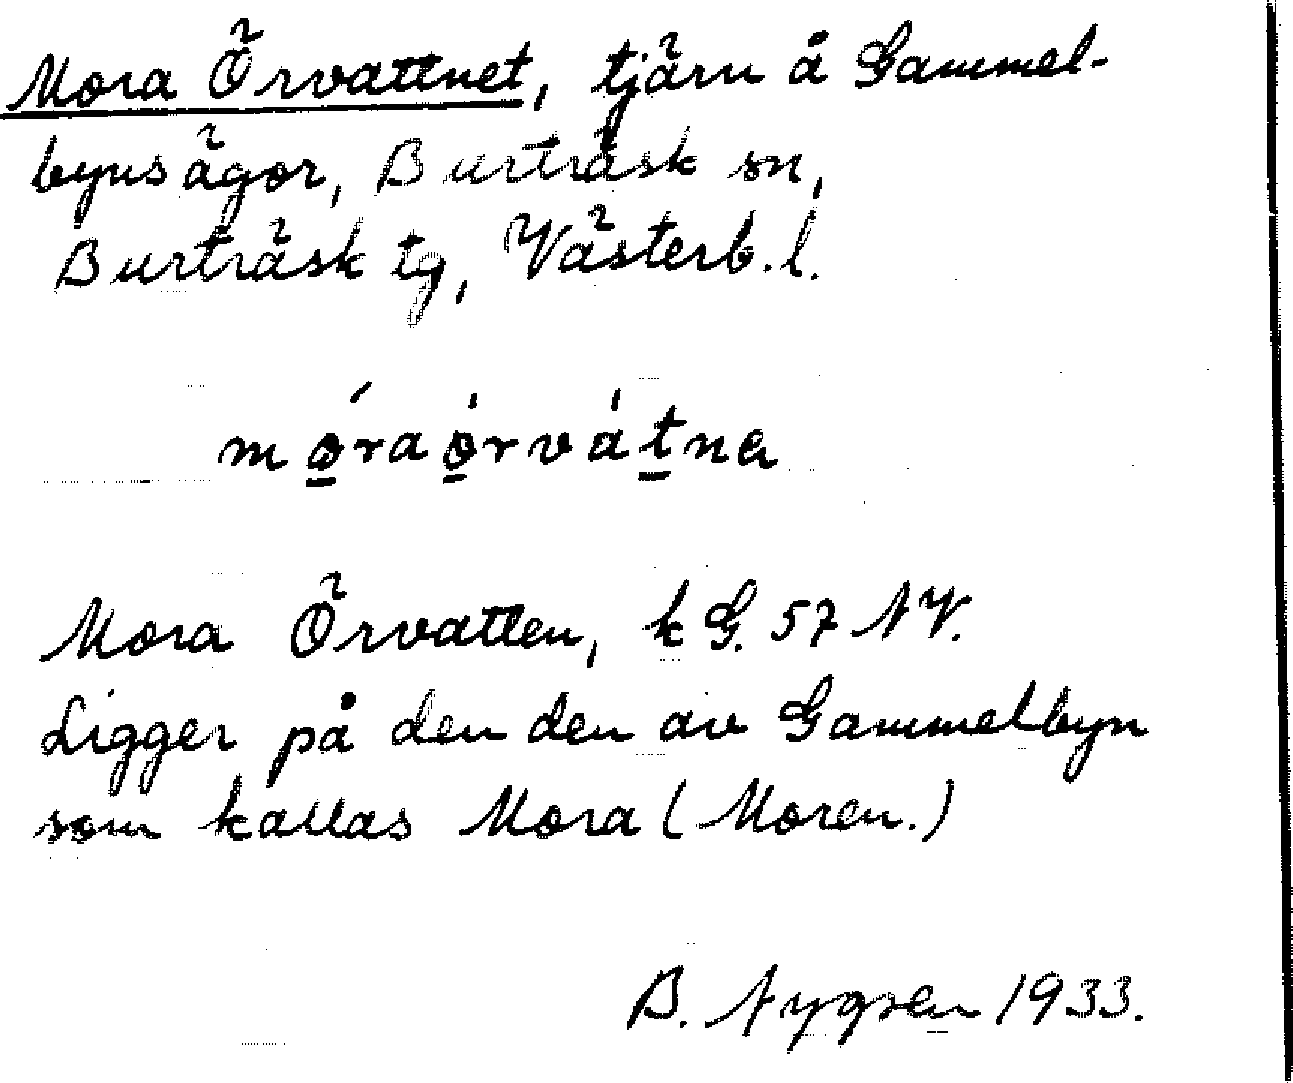 Mora Örvattnet, tjärn å Gammel-
bynsägor, Burträsk sn,
Burträsk tg, Västerb.l.
móraórvátna
Mora Örvatten, kG. 57 NV.
Ligger på den den av Gammelbyn
som kallas Mora (Moren.)
B. 1933.